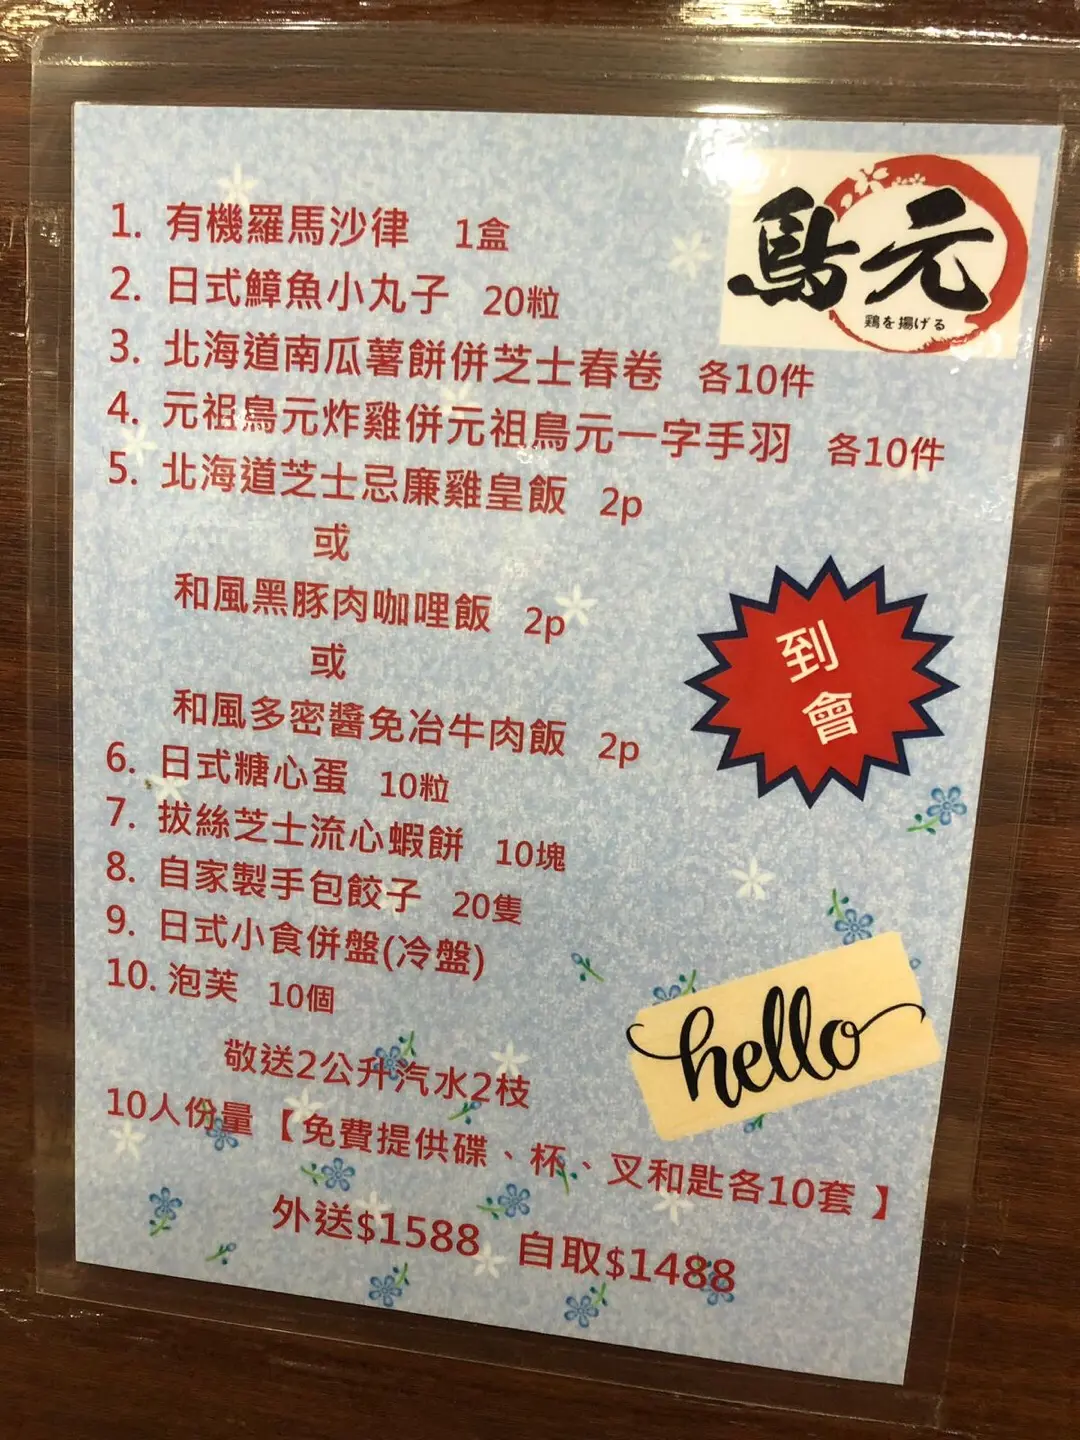 鳥元
鶏を揚げる
1. 有機羅馬沙律 1盒
2. 日式鱆魚小丸子 20粒
3. 北海道南瓜薯餅併芝士春卷 各10件
4. 元祖鳥元炸雞併元祖鳥元一字手羽 各10件
5. 北海道芝士忌廉雞皇飯 2p
或
和風黑豚肉咖哩飯 2p
或
和風多密醬免冶牛肉飯 2p
到
會
6. 日式糖心蛋 10粒
7. 拔絲芝士流心蝦餅 10塊
8. 自家製手包餃子 20隻
9. 日式小食併盤(冷盤)
10. 泡芙 10個
hello
敬送2公升汽水2枝
10人份量【免費提供碟、杯、叉和匙各10套】
外送$1588 自取$1488